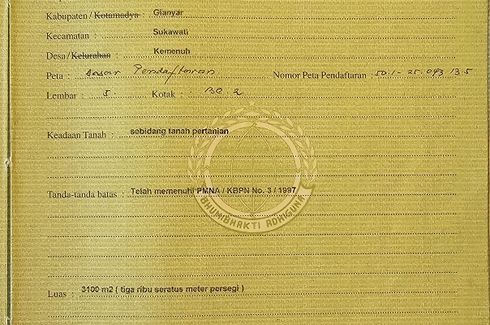 Kabupaten / Kotamadya : Gianyar
Kecamatan : Sukawati
Desa / Kelurahan : Kemenuh
Peta : dasar Pendaftaran Nomor Peta Pendaftaran 50.1-25.093.13.5
Lembar : 5 Kotak : BC.2
Keadaan Tanah : sebidang tanah pertanian
Tanda-tanda batas : Telah memenuhi PMNA / KBPN No. 3 / 1997
BHUMIBHAKTI ADHIGUNA
Luas : 3100 m2 ( tiga ribu seratus meter persegi )